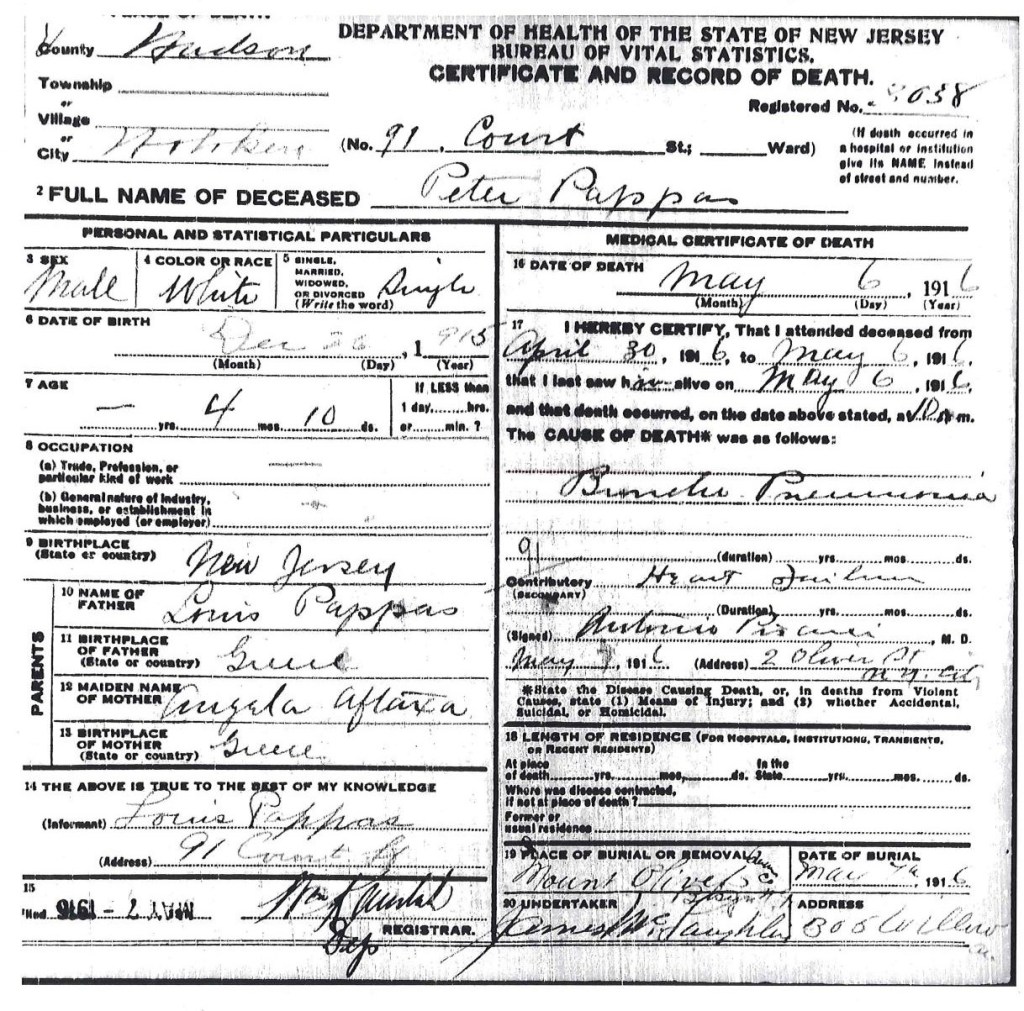 County Hudson
DEPARTMENT OF HEALTH OF THE STATE OF NEW JERSEY
BUREAU OF VITAL STATISTICS.
CERTIFICATE AND RECORD OF DEATH.
Township
or
Village
or
City Hoboken
Registered No. 3038
(No. 91 Court St.; Ward)
(If death occurred in a hospital or institution give its NAME instead of street and number.
2 FULL NAME OF DECEASED Peter Pappas
PERSONAL AND STATISTICAL PARTICULARS
3 SEX Male
4 COLOR OR RACE White
5 SINGLE, MARRIED, WIDOWED, OR DIVORCED (Write the word) Single
6 DATE OF BIRTH
Dec 26, 1 915
(Month) (Day) (Year)
7 AGE
— yrs. 4 mos. 10 ds.
If LESS than 1 day, hrs. or min. ?
8 OCCUPATION
(a) Trade, Profession, or particular kind of work —
(b) General nature of industry, business, or establishment in which employed (or employer)
9 BIRTHPLACE (State or country) New Jersey
PARENTS
10 NAME OF FATHER Louis Pappas
11 BIRTHPLACE OF FATHER (State or country) Greece
12 MAIDEN NAME OF MOTHER Angela Aftaxa
13 BIRTHPLACE OF MOTHER (State or country) Greece
14 THE ABOVE IS TRUE TO THE BEST OF MY KNOWLEDGE
(Informant) Louis Pappas
(Address) 91 Court St
15
Filed MAY 7 - 1916
Dep REGISTRAR.
MEDICAL CERTIFICATE OF DEATH
16 DATE OF DEATH May 6, 1916
(Month) (Day) (Year)
17 I HEREBY CERTIFY, That I attended deceased from
April 30, 1916, to May 6, 1916,
that I last saw him alive on May 6, 1916,
and that death occurred, on the date above stated, at 10 m.
The CAUSE OF DEATH* was as follows:
Broncho Pneumonia
91 (duration) yrs. mos. ds.
Contributory (SECONDARY) Heart Failure
(Duration) yrs. mos. ds.
(Signed) Antonio Pisani, M. D.
May 7, 1916 (Address) 2 Oliver St
N.Y. City
*State the Disease Causing Death, or, in deaths from Violent
Causes, state (1) Means of Injury; and (2) whether Accidental,
Suicidal, or Homicidal.
18 LENGTH OF RESIDENCE (FOR HOSPITALS, INSTITUTIONS, TRANSIENTS, OR RECENT RESIDENTS)
At place of death yrs. mos. ds. In the State yrs. mos. ds.
Where was disease contracted, if not at place of death ?
Former or usual residence
19 PLACE OF BURIAL OR REMOVAL
Mount Olivet
DATE OF BURIAL
May 7th, 1916
20 UNDERTAKER
James McLaughlin
ADDRESS
305 Willow